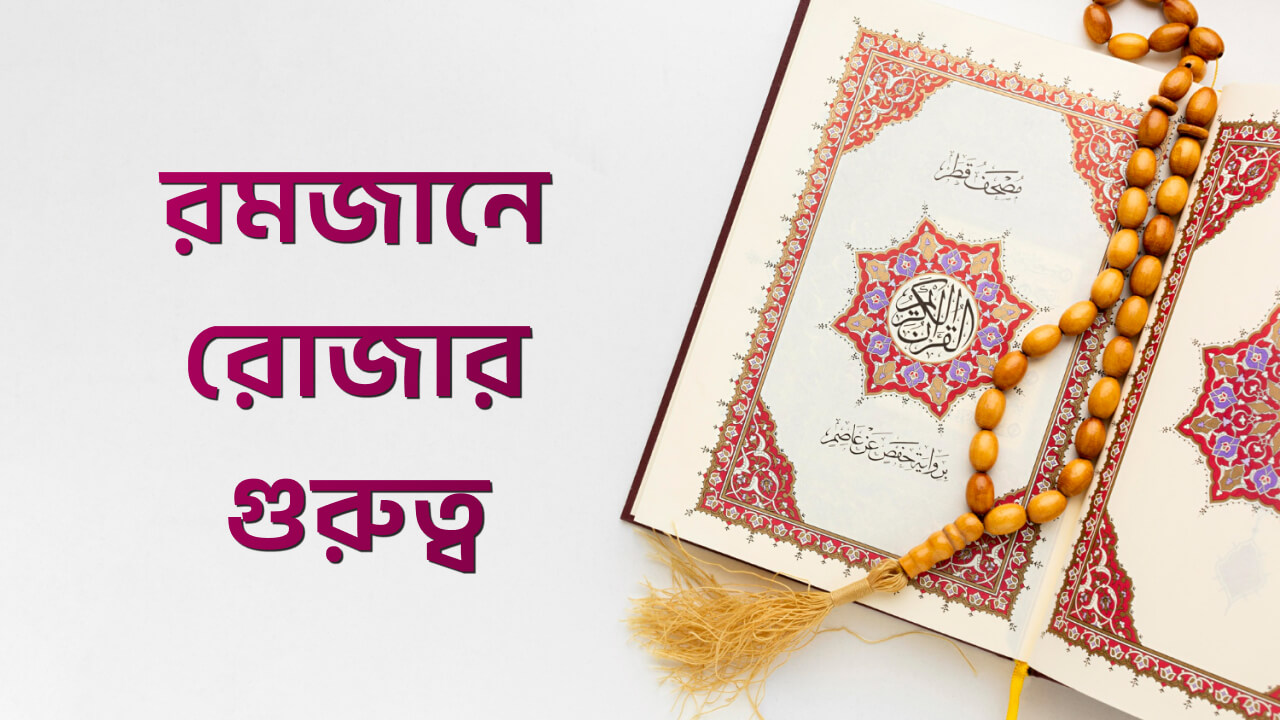 রমজানে
রোজার
গুরুত্ব
مُصْحَف قَطَر
القرآن الكريم
بروَايَة حَفصَ عَن عَاصِم